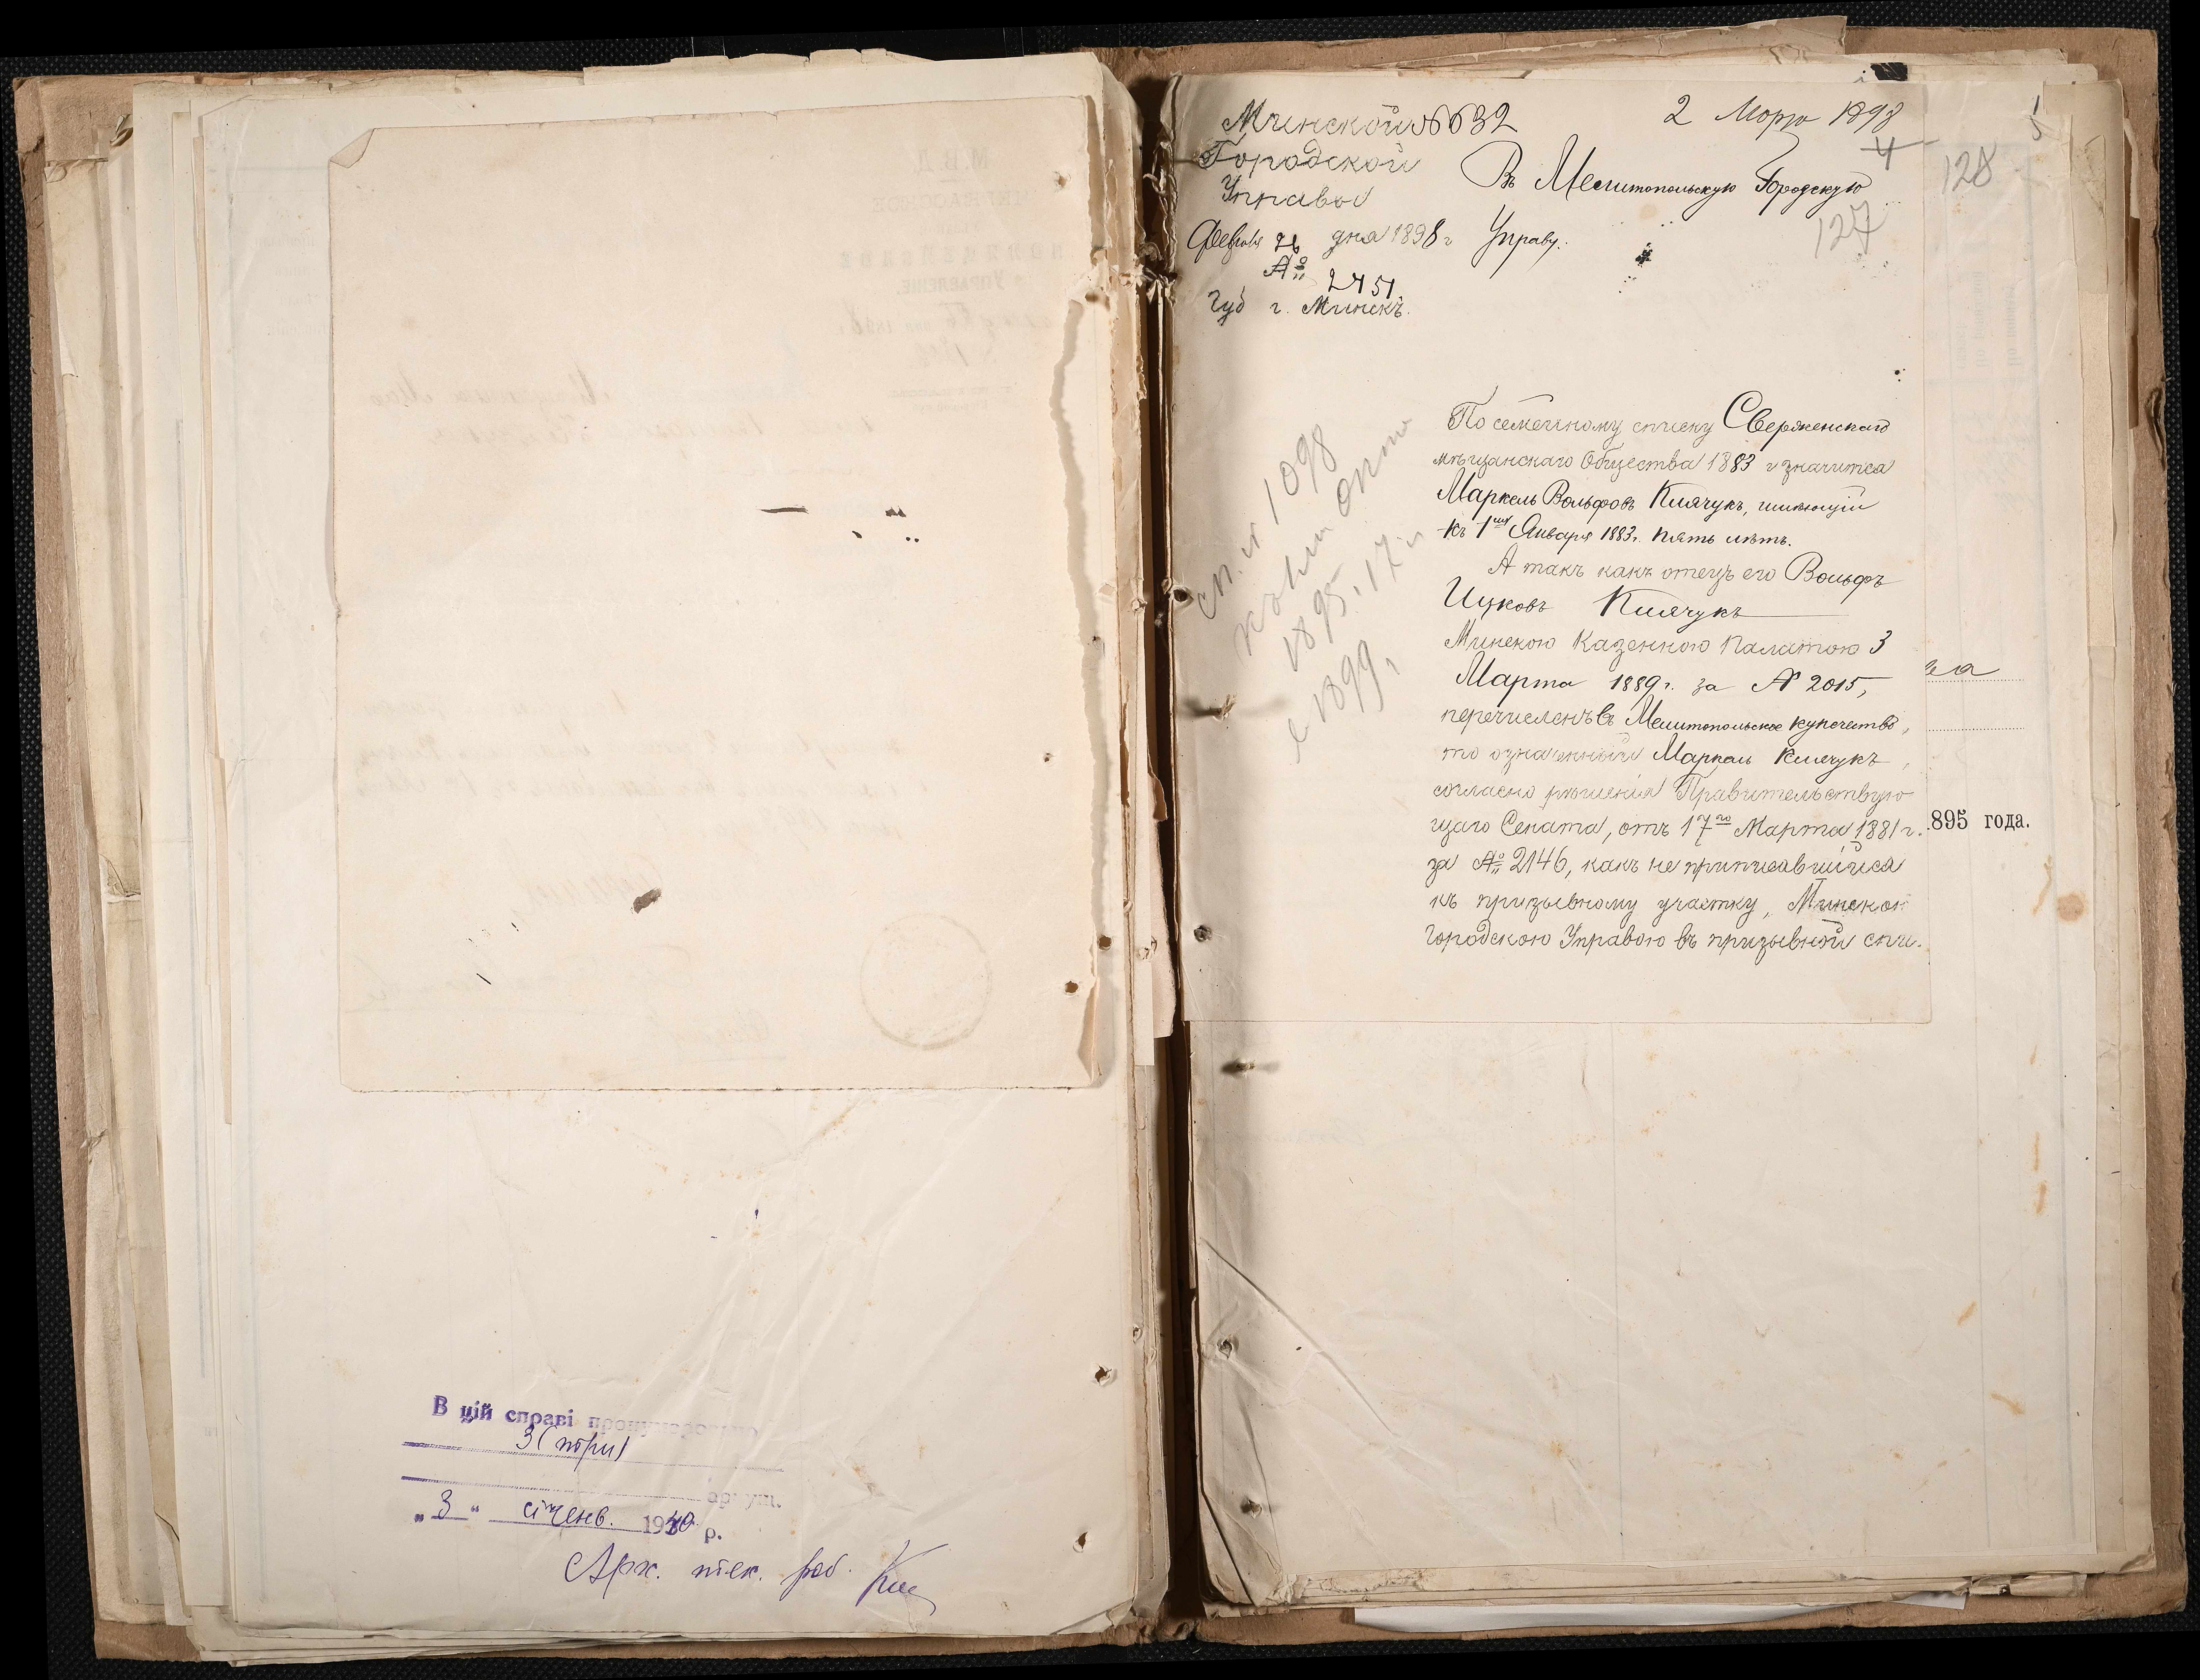 В цій справі пронумеровано
3 (три)
арнуш.
„3“ січенв. 1940 р.
Арх. тех. роб.
Минской № 632
2 Марта 1898
Городской
Управы
Въ Мелитопольскую Городскую
Управу.
Февраля 26 дня 1898 г
№ 2451
Губ г. Минскъ.
4
128
127
По семейному списку Сверженскаго
мѣщанскаго Общества 1883 г значится
Маркель Вольфовъ Клячукъ, имѣющій
къ 1му Января 1883 г. пять лѣтъ.
А такъ какъ отецъ его Вольфъ
Ицковъ Клячукъ
Минскою Казенною Палатою 3
Марта 1889 г. за № 2015,
перечисленъ въ Мелитопольское купечество,
то означенный Маркель Клячукъ,
согласно рѣшенія Правительствую
щаго Сената, отъ 17го Марта 1881 г.
за № 2146, какъ не приписавшійся
къ призывному участку, Минскою
Городскою Управою въ призывной спи.
1898
1895. 17
1899
895 года.